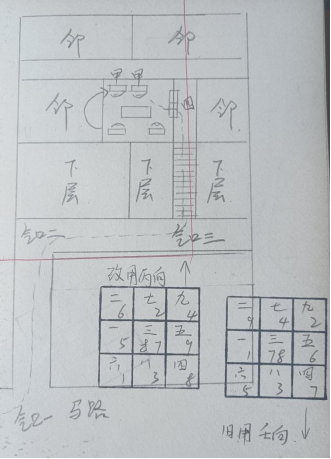 邻 邻
甲 甲
邻 邻
下层 下层 下层
气口二 气口三
改用丙向
二 七 九
6 2 4
一 三 五
5 7 9
六 八 四
1 3 8
二 七 九
9 4 2
一 三 五
1 78 6
六 八 四
5 3 7
气口一 马路
旧用壬向